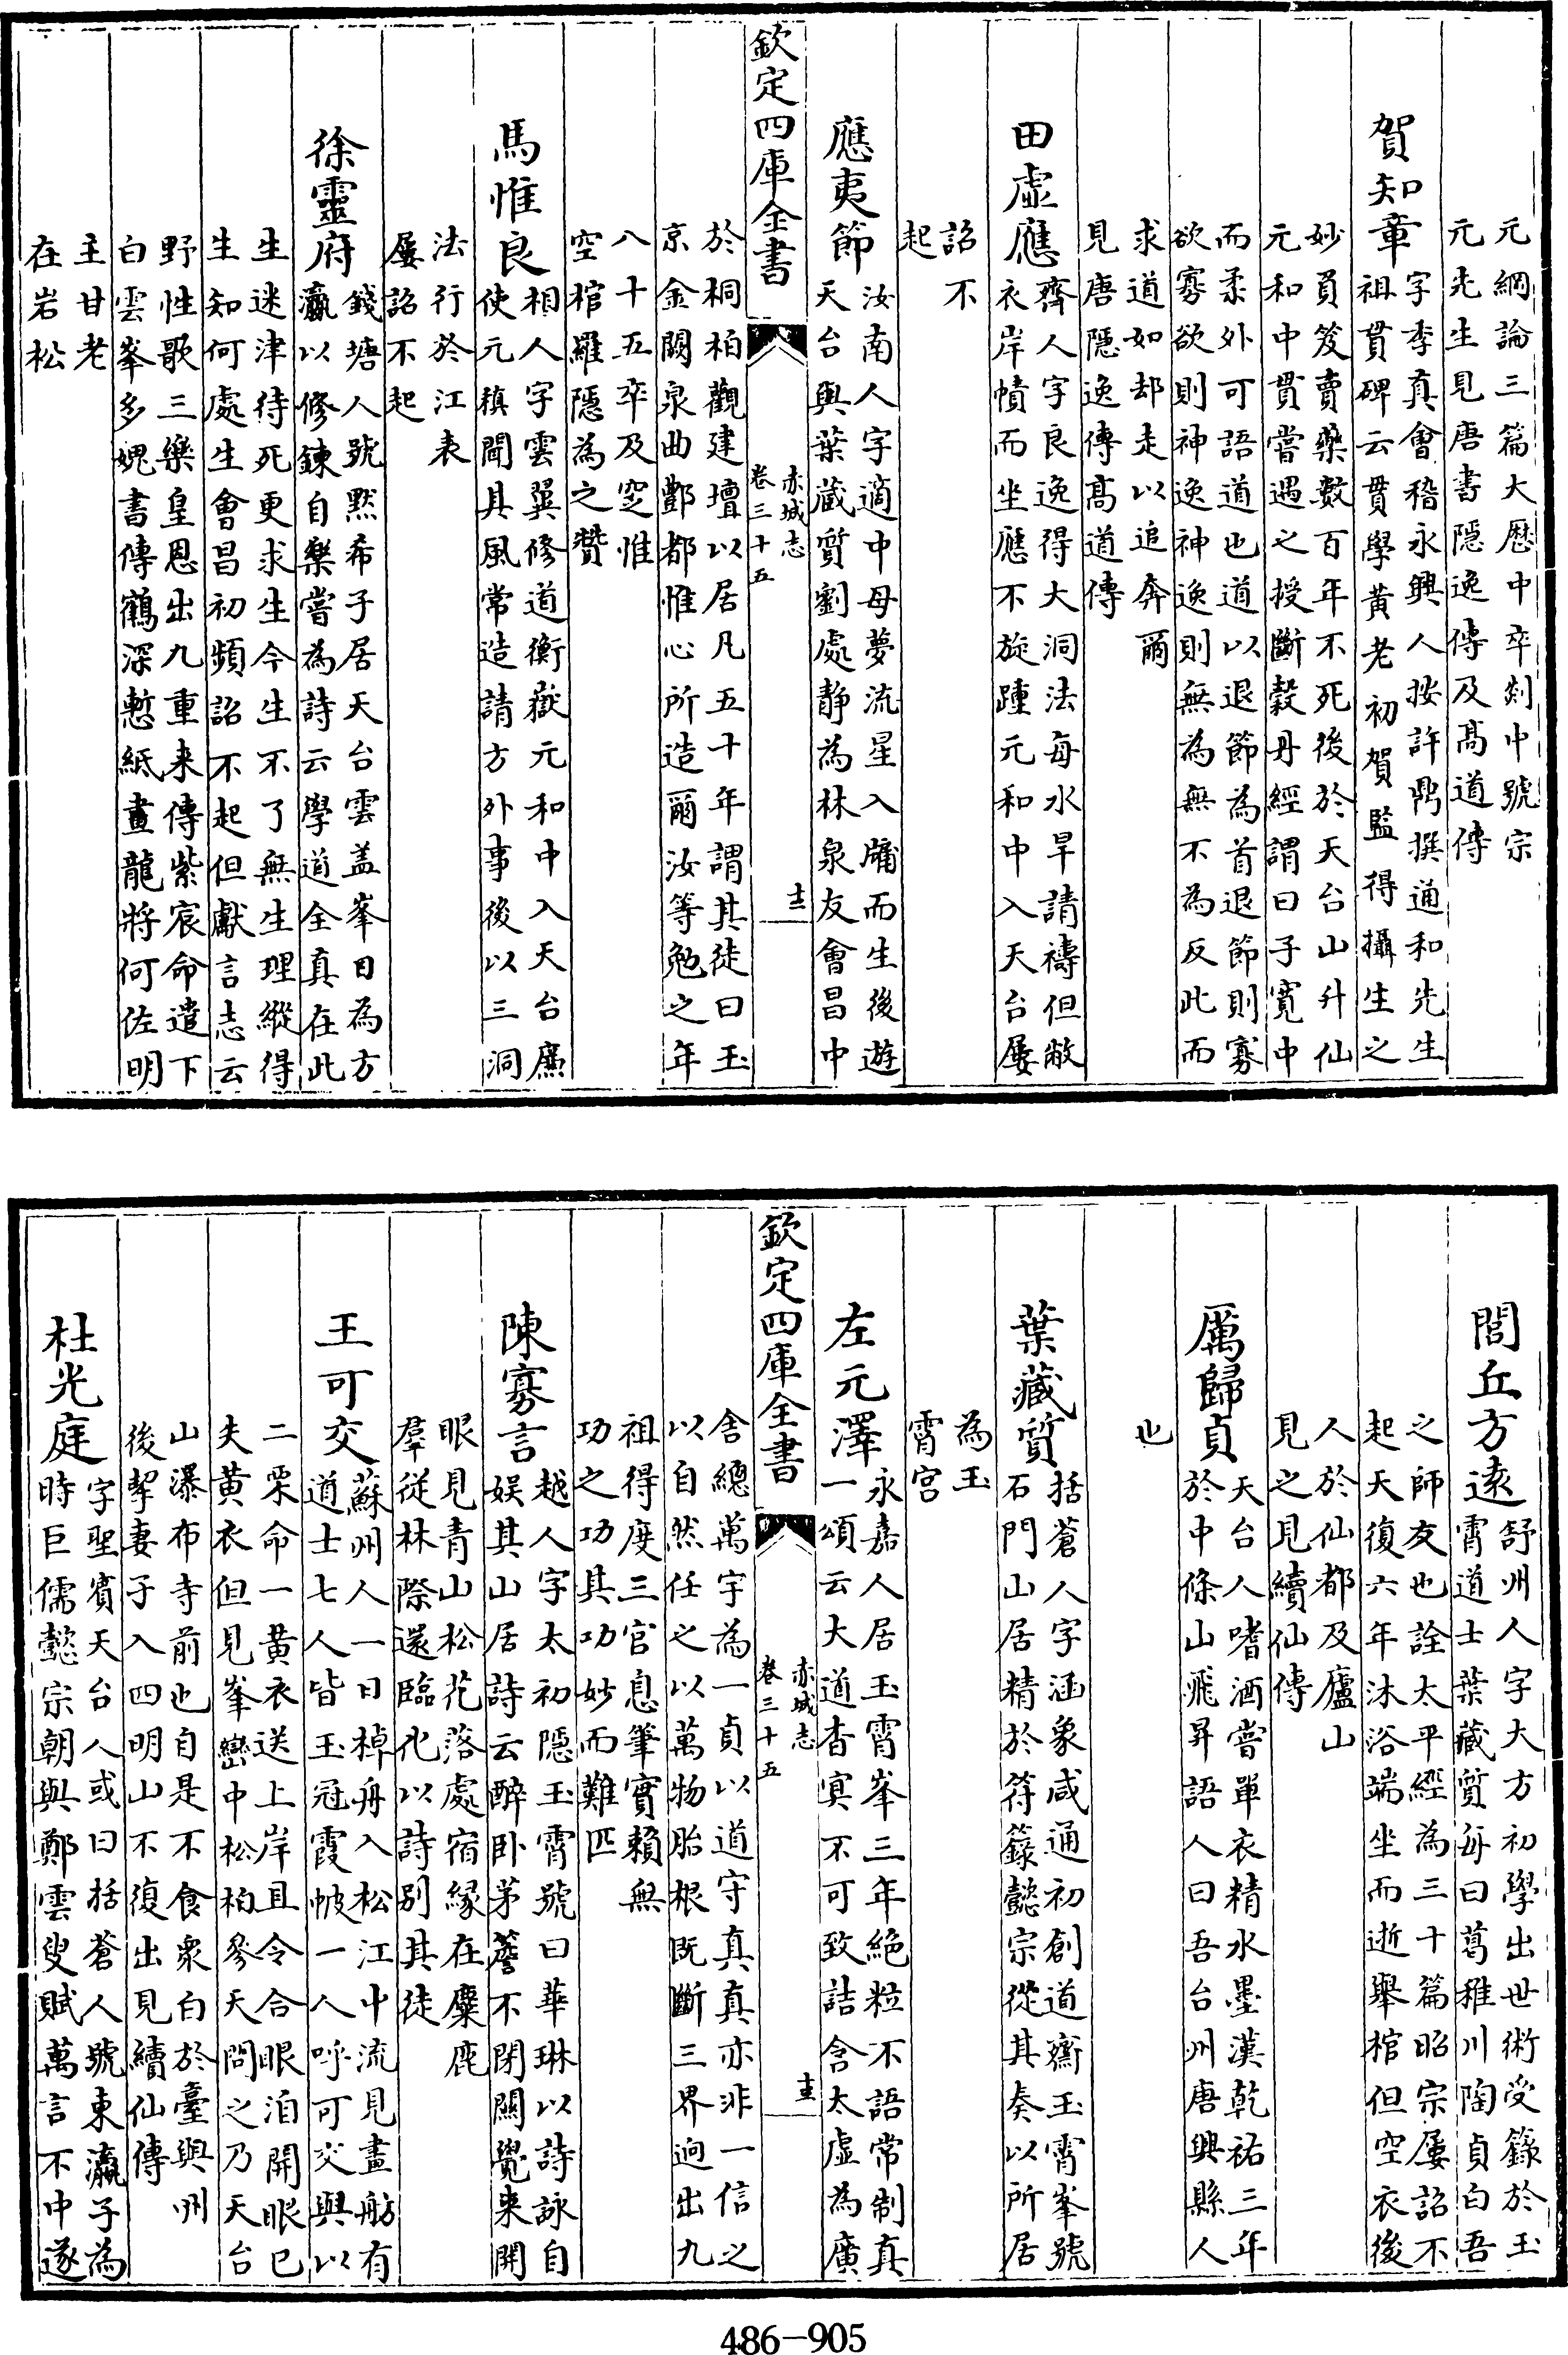 元綱論三篇大厯中卒剡中號宗
元先生見唐書隱逸傳及髙道傳
賀知章
字季真會稽永興人按許鼎撰通和先生
祖貫碑云貫學黃老初賀監得攝生之
妙員笈賣藥數百年不死後於天台山升仙
元和中貫嘗遇之授斷榖丹經謂曰子寛中
而柔外可語道也道以退節為首退節則寡
欲寡欲則神逸神逸則無為無不為反此而
求道如却走以追奔爾
見唐隱逸傳髙道傳
田虛應
齊人字良逸得大洞法每水旱請禱但敝
衣岸幘而坐應不旋踵元和中入天台屢
詔不
起
應夷節
汝南人字適中母夢流星入牖而生後遊
天台與葉藏質劉處静為林泉友會昌中
欽定四庫全書
赤城志
卷三十五
十二
於桐柏觀建壇以居凡五十年謂其徒曰玉
京金闕泉曲酆都惟心所造爾汝等勉之年
八十五卒及窆惟
空棺羅隱為之贊
馬惟良
相人字雲翼修道衡嶽元和中入天台廉
使元稹聞其風常造請方外事後以三洞
法行於江表
屢詔不起
徐靈府
錢塘人號黙希子居天台雲盖峯目為方
瀛以修鍊自樂嘗為詩云學道全真在此
生迷津待死更求生今生不了無生理縱得
生知何處生會昌初頻詔不起但獻言志云
野性歌三樂皇恩出九重来傳紫宸命遣下
白雲峯多媿書傳鶴深慙紙畫龍将何佐明
主甘老
在岩松
閭丘方逺
舒州人字大方初學出世術受籙於玉
霄道士葉藏質毎曰葛稚川陶貞白吾
之師友也詮太平經為三十篇昭宗屢詔不
起天復六年沐浴端坐而逝舉棺但空衣後
人於仙都及廬山
見之見續仙傳
厲歸貞
天台人嗜酒嘗單衣精水墨漢乾祐三年
於中條山飛昇語人曰吾台州唐興縣人
也
葉藏質
括蒼人字涵象咸通初創道齋玉霄峯號
石門山居精於符籙懿宗從其奏以所居
為玉
霄宫
左元澤
永嘉人居玉霄峯三年絶粒不語常制真
一頌云大道杳㝠不可致詰含太虛為廣
欽定四庫全書
赤城志
卷三十五
十三
舍總萬宇為一貞以道守真真亦非一信之
以自然任之以萬物胎根既斷三界迥出九
祖得度三官息筆實賴無
功之功其功妙而難匹
陳寡言
越人字太初隱玉霄號曰華琳以詩詠自
娱其山居詩云醉卧茅簷不閉關覺来開
眼見青山松花落處宿緣在麋鹿
羣從林際還臨化以詩别其徒
王可交
蘇州人一日棹舟入松江中流見畫舫有
道士七人皆玉冠霞帔一人呼可交與以
二栗命一黄衣送上岸且令合眼洎開眼已
失黄衣但見峯巒中松柏參天問之乃天台
山瀑布寺前也自是不食衆白於臺與州
後挈妻子入四明山不復出見續仙傳
杜光庭
字聖賓天台人或曰括蒼人號東瀛子為
時巨儒懿宗朝與鄭雲叟賦萬言不中遂
486-905